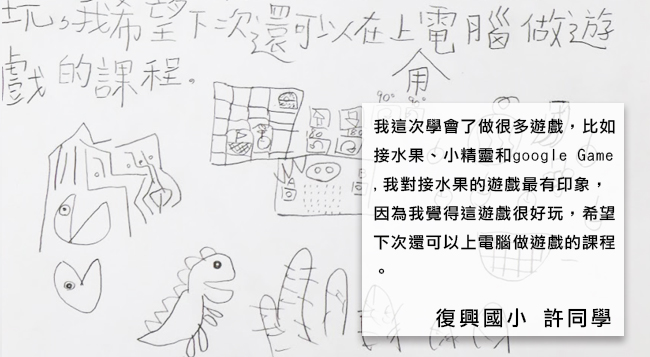 玩，我希望下次還可以在上電腦做遊
用
戲的課程。
90°
90°
我這次學會了做很多遊戲，比如
接水果、小精靈和google Game
,我對接水果的遊戲最有印象，
因為我覺得這遊戲很好玩，希望
下次還可以上電腦做遊戲的課程
。
復興國小 許同學